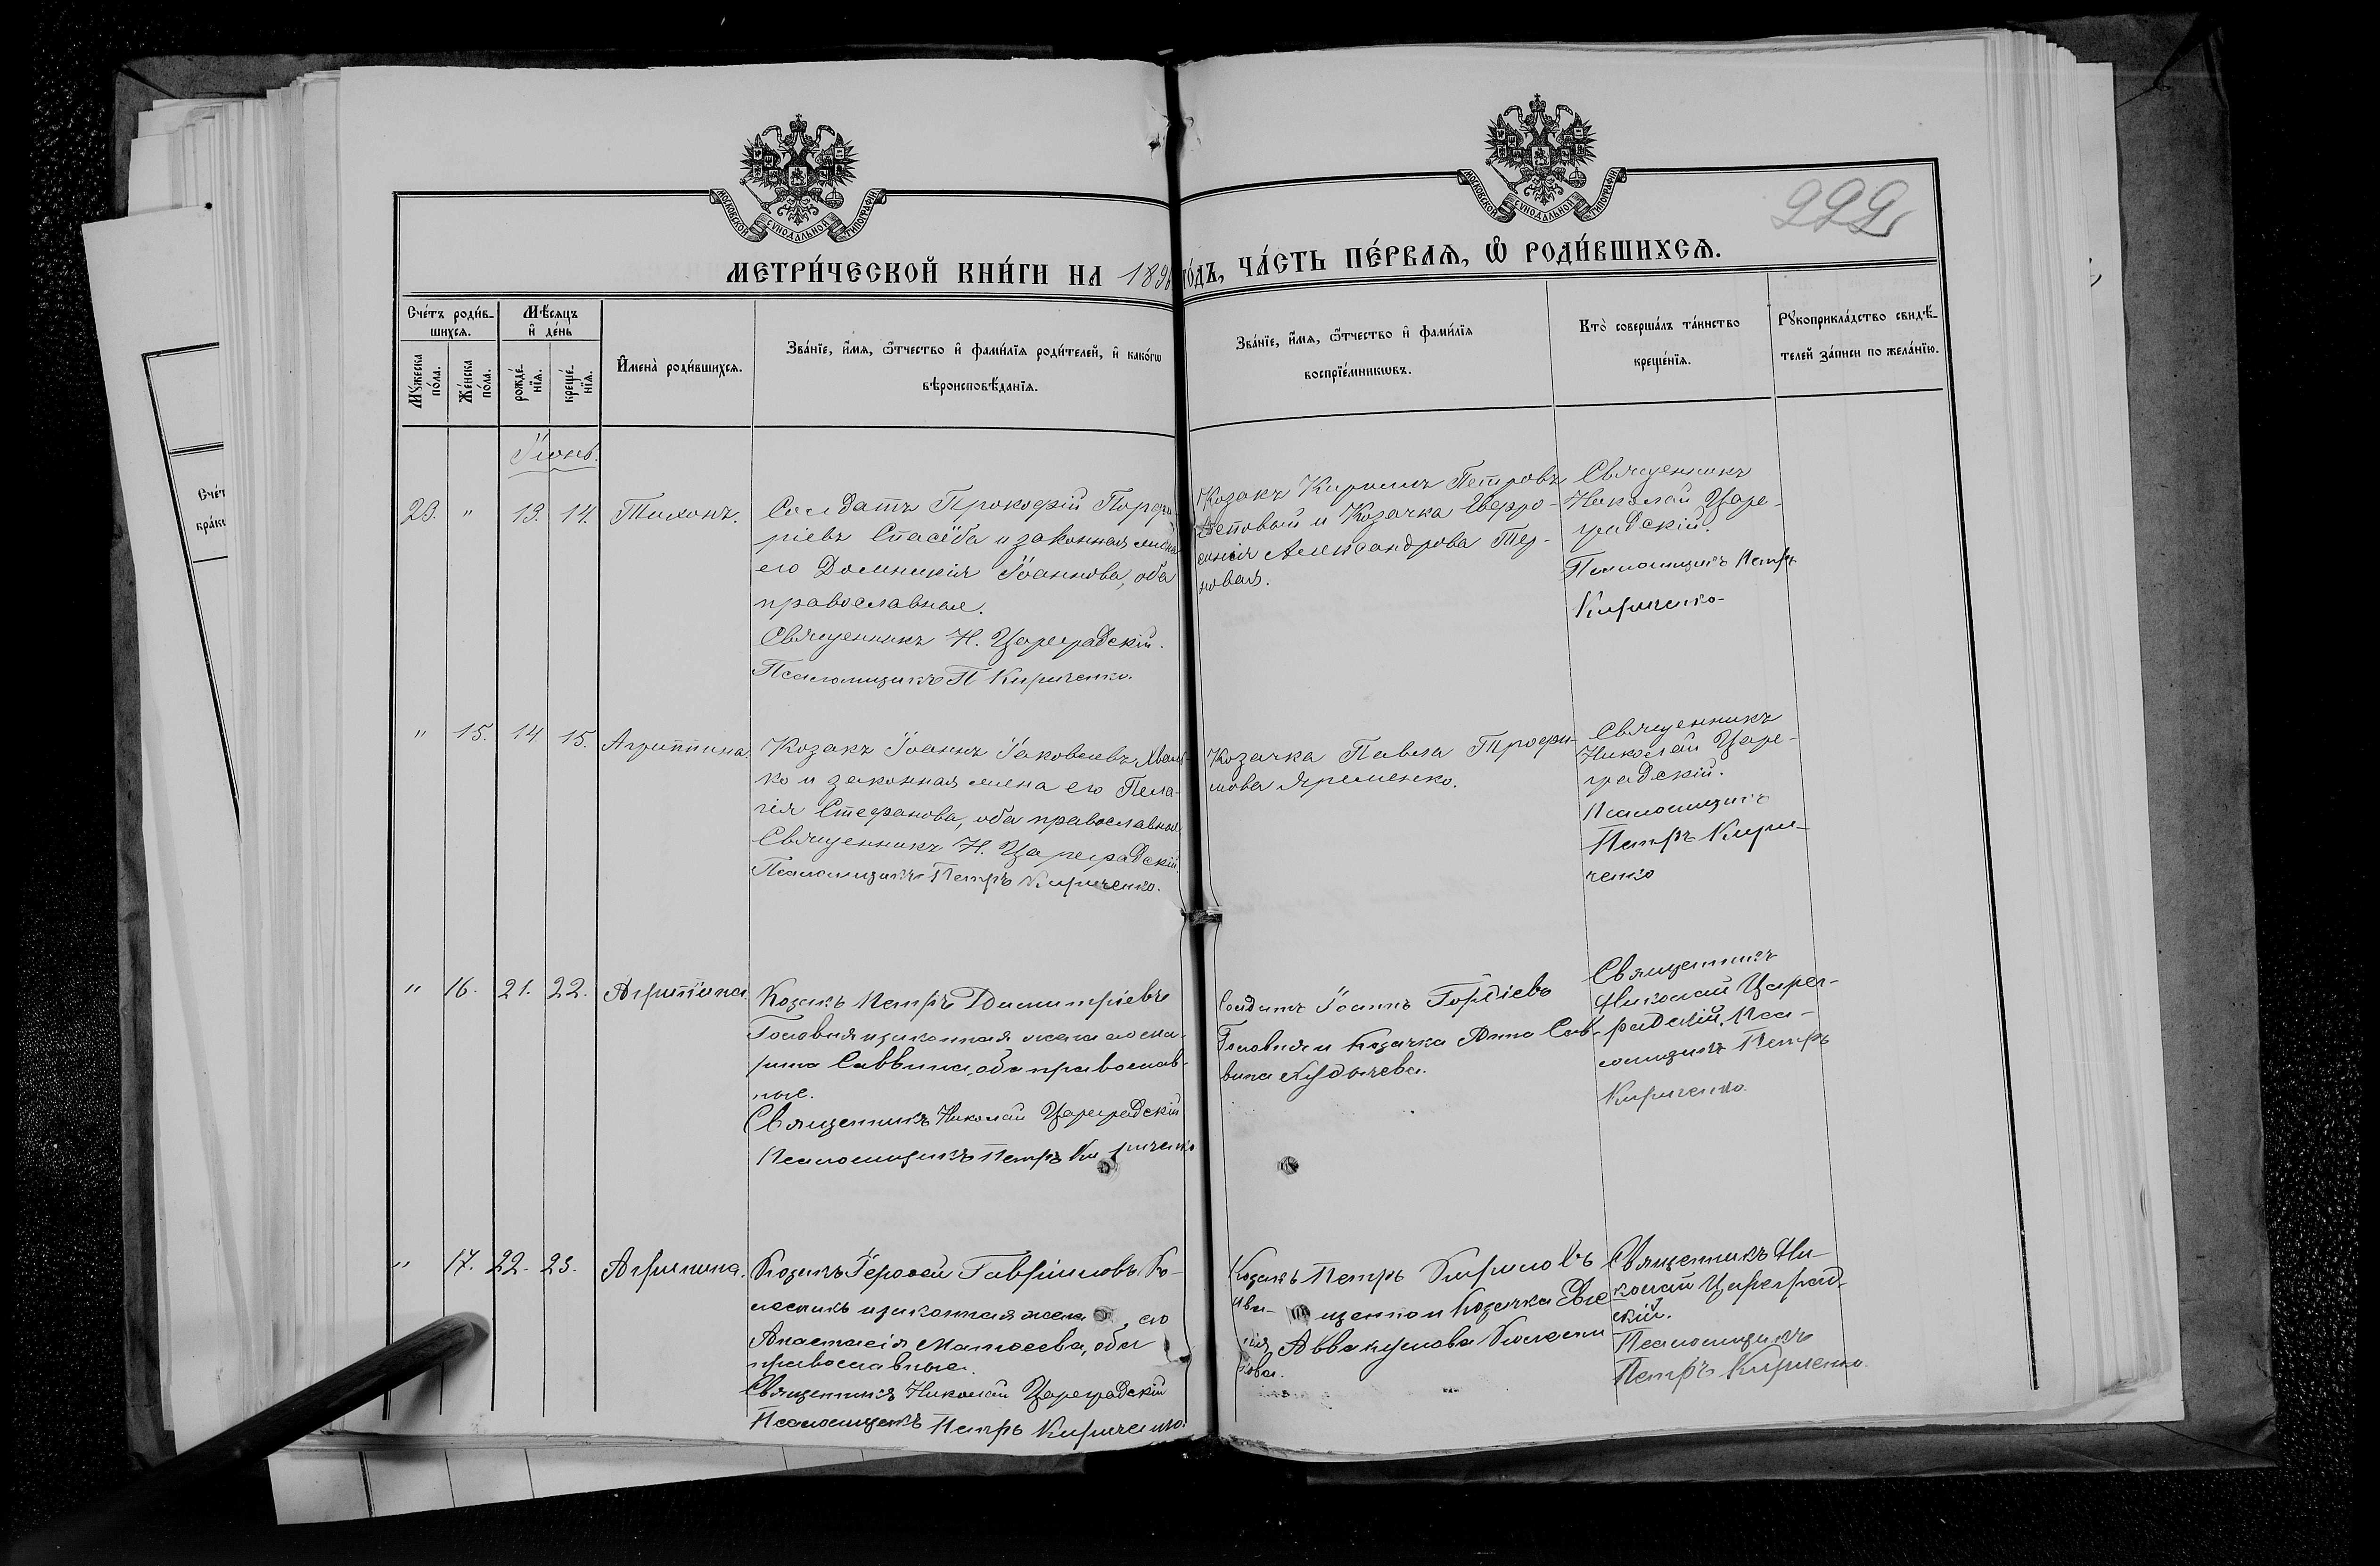 МОСКОВСКОЙ СѴНОДАЛЬНОЙ ТИПОГРАФІИ
МОСКОВСКОЙ СѴНОДАЛЬНОЙ ТИПОГРАФІИ
222
МЕТРИ́ЧЕСКОЙ КНИ́ГИ НА 189 го́дъ, ЧА́СТЬ ПЕ́РВАѦ, Ѡ҆ РОДИ́ВШИХСѦ.
Сче́тъ роди́в-
шихсѧ.
Мꙋ́жеска по́ла.
Же́нска по́ла.
Мѣ́сѧцъ
и҆ де́нь
рожде́-
нїѧ.
креще́-
нїѧ.
И҆мена̀ роди́вшихсѧ.
Зва́нїе, и҆́мѧ, ѻ҆́тчество и҆ фами́лїѧ роди́телей, и҆ како́гѡ
вѣроисповѣ́данїѧ.
Зва́нїе, и҆́мѧ, ѻ҆́тчество и҆ фами́лїѧ
воспрїе́мникѡвъ.
Кто̀ соверша́лъ та́инство
креще́нїѧ.
Рꙋкоприкла́дство свидѣ́-
телей за́писи по жела́нїю.
Сче́т
бра́к
Іюнь.
23. " 13. 14. Тихонъ.
Солдатъ Прокофій Порфи-
ріевъ Спасиба и законная жена
его Домникія Іоаннова, оба
православные.
Священникъ Н. Цареградскій.
Псаломщикъ П Кириченко.
Козакъ Кириллъ Петровъ
и Козачка Евфро-
синія Александрова Тер-
новая.
Священникъ
Николай Царе-
градскій.
Псаломщикъ Петръ
Кириченко
" 15. 14 15. Агриппина.
Козакъ Іоаннъ Іаковлевъ
ко и законная жена его Пела-
гія Стефанова, оба православные
Священникъ Н. Цареградскій.
Псаломщикъ Петръ Кириченко.
Козачка Павла Трофи-
мова Яременко.
Священникъ
Николай Царе-
градскій.
Псаломщикъ
Петръ Кири-
ченко
" 16. 21. 22. Агрипина.
Козакъ Петръ Димитріевъ
Головня и законная жена его Ма-
рина Саввина, оба православ-
ные.
Священникъ Николай Цареградскій
Псаломщикъ Петръ Кириченко
Солдатъ Іоаннъ Гордіевъ
Головня и Козачка Анна Сав-
вина
Священникъ
Николай Царег-
радскій, Пса-
ломщикъ Петръ
Кириченко.
" 17. 22. 23. Агрипина.
Козакъ Іероѳей Гавріиловъ Ко-
лесникъ и законная жена его
Анастасія Матѳеева, оба
православные.
Священникъ Николай Цареградскій
Псаломщикъ Петръ Кириченко.
Козакъ Петръ Кириловъ
Ива- щенко и Козачка Евге-
нія Аввакумова Колесни-
кова.
Священникъ Ни-
колай Цареград-
скій.
Псаломщикъ
Петръ Кириченко.